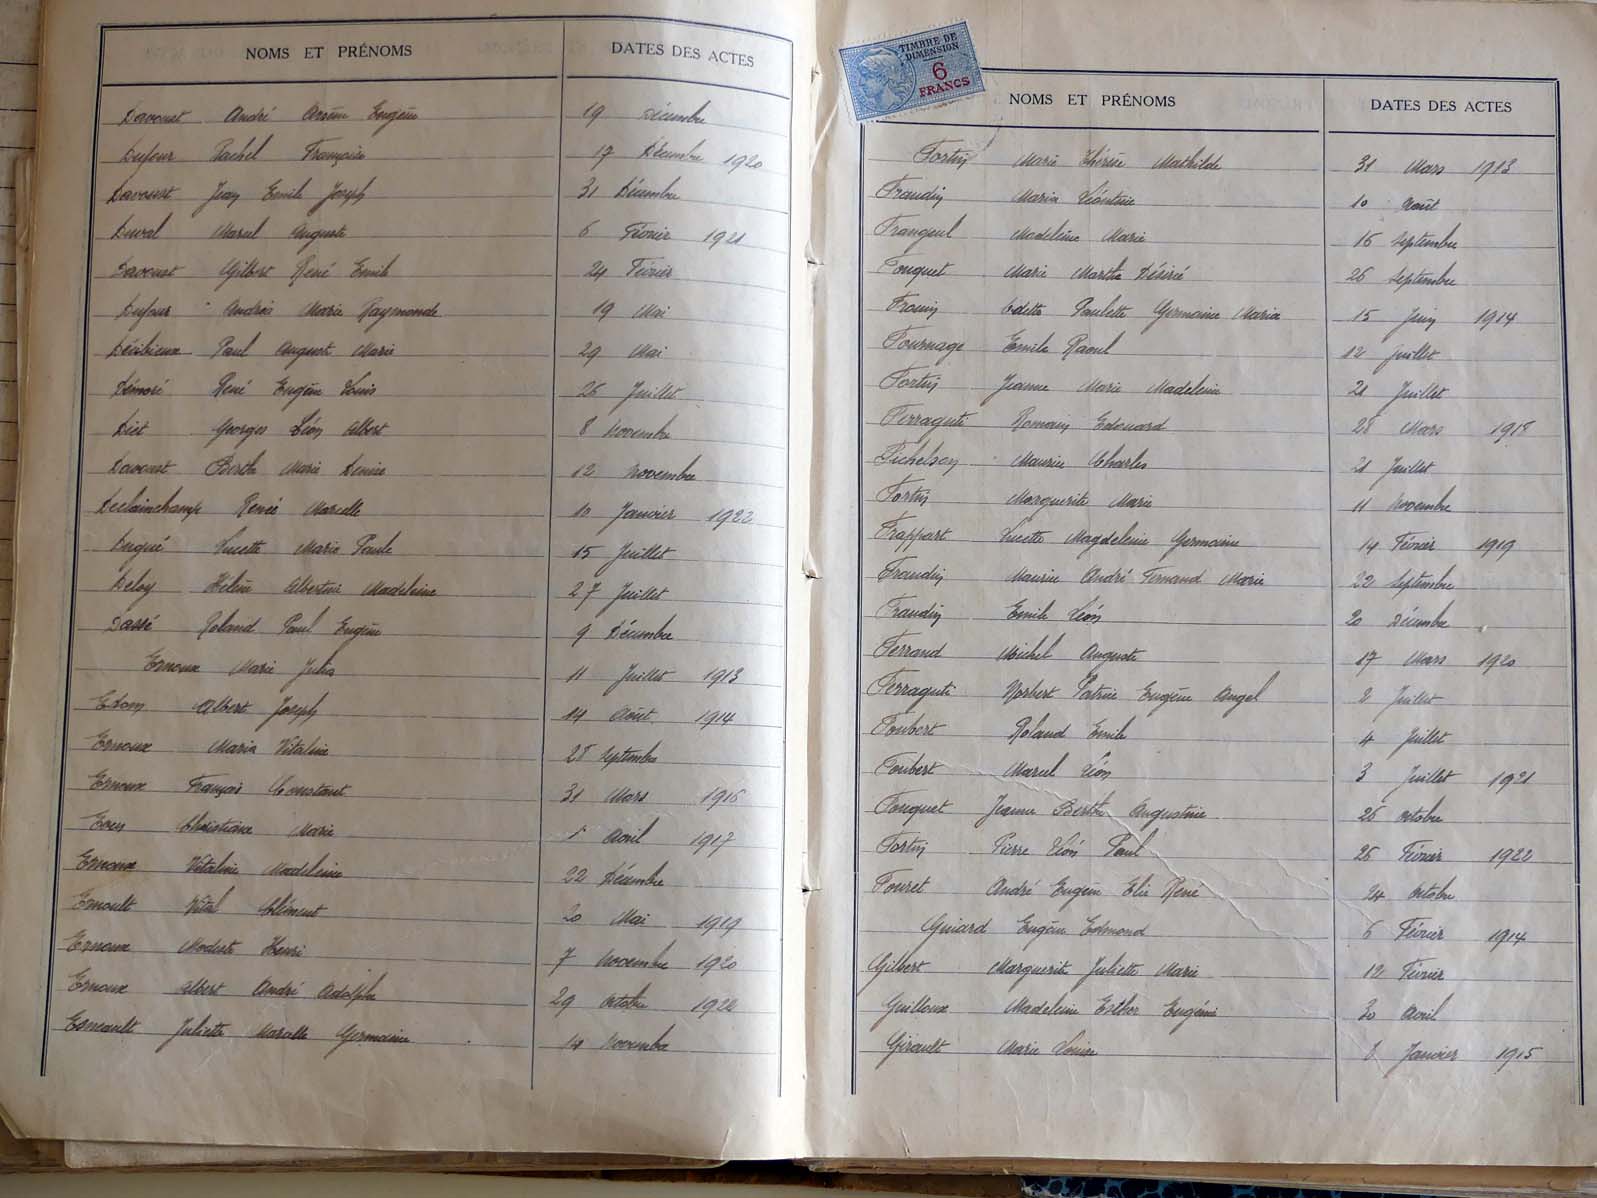 NOMS ET PRÉNOMS DATES DES ACTES
Davoust André Arsène Eugène 19 Décembre
Dufour Rachel Françoise 17 Décembre 1920
Davoust Jean Emile Joseph 31 Décembre
Duval Marcel Auguste 6 Février 1921
Davoust Gilbert René Emile 24 Février
Dufour Andréa Marie Raymonde 19 Mai
Paul August Marie 29 Mai
Démoré René Eugène Louis 26 Juillet
Diet Georges Léon Albert 8 Novembre
Davoust Berthe Marie Denise 12 Novembre
Declainchamp Renée Marcelle 10 Janvier 1922
Dugué Lucette Marie Paule 15 Juillet
Deloy Hélène Albertine Madeleine 27 Juillet
Dassé Roland Paul Eugène 9 Décembre
Ernoux Marie Julia 11 Juillet 1913
Edom Albert Joseph 14 Août 1914
Ernoux Maria Vitaline 28 Septembre
Ernoux François Constant 31 Mars 1916
Even Christiane Marie 1 Avril 1917
Ernoux Vitaline Madeleine 22 Décembre
Ernoult Vital Clément 20 Mai 1919
Ernoux Modeste Henri 7 Novembre 1920
Ernoux Albert André Adolphe 29 Octobre 1922
Esneault Juliette Marcelle Germaine 14 Novembre
TIMBRE DE DIMENSION
6 FRANCS
NOMS ET PRÉNOMS DATES DES ACTES
Fortin Marie Thérèse Mathilde 31 Mars 1913
Fraudin Maria Léontine 10 Août
Frangeul Madeleine Marie 16 Septembre
Fouquet Marie Marthe Désirée 26 Septembre
Frouin Odette Paulette Germaine Maria 15 Juin 1914
Fournage Emile Raoul 12 Juillet
Fortin Jeanne Marie Madeleine 21 Juillet
Ferraguti Romain Edouard 28 Mars 1918
Fichelson Maurice Charles 21 Juillet
Fortin Marguerite Marie 11 Novembre
Frappart Lucette Magdeleine Germaine 14 Février 1919
Fraudin Maurice André Fernand Marie 22 Septembre
Fraudin Emile Léon 20 Décembre
Ferrand Michel Auguste 17 Mars 1920
Ferraguti Norbert Patrice Eugène Angel 2 Juillet
Foubert Roland Emile 4 Juillet
Foubert Marcel Léon 3 Juillet 1921
Fouquet Jeanne Berthe Augustine 26 Octobre
Fortin Pierre Léon Paul 26 Février 1922
Fouret André Eugène Elie René 24 Octobre
Guiard Eugène Edmond 6 Février 1914
Gilbert Marguerite Juliette Marie 12 Février
Guilloux Madeleine Esther Eugénie 30 Avril
Girault Marie Louise 8 Janvier 1915